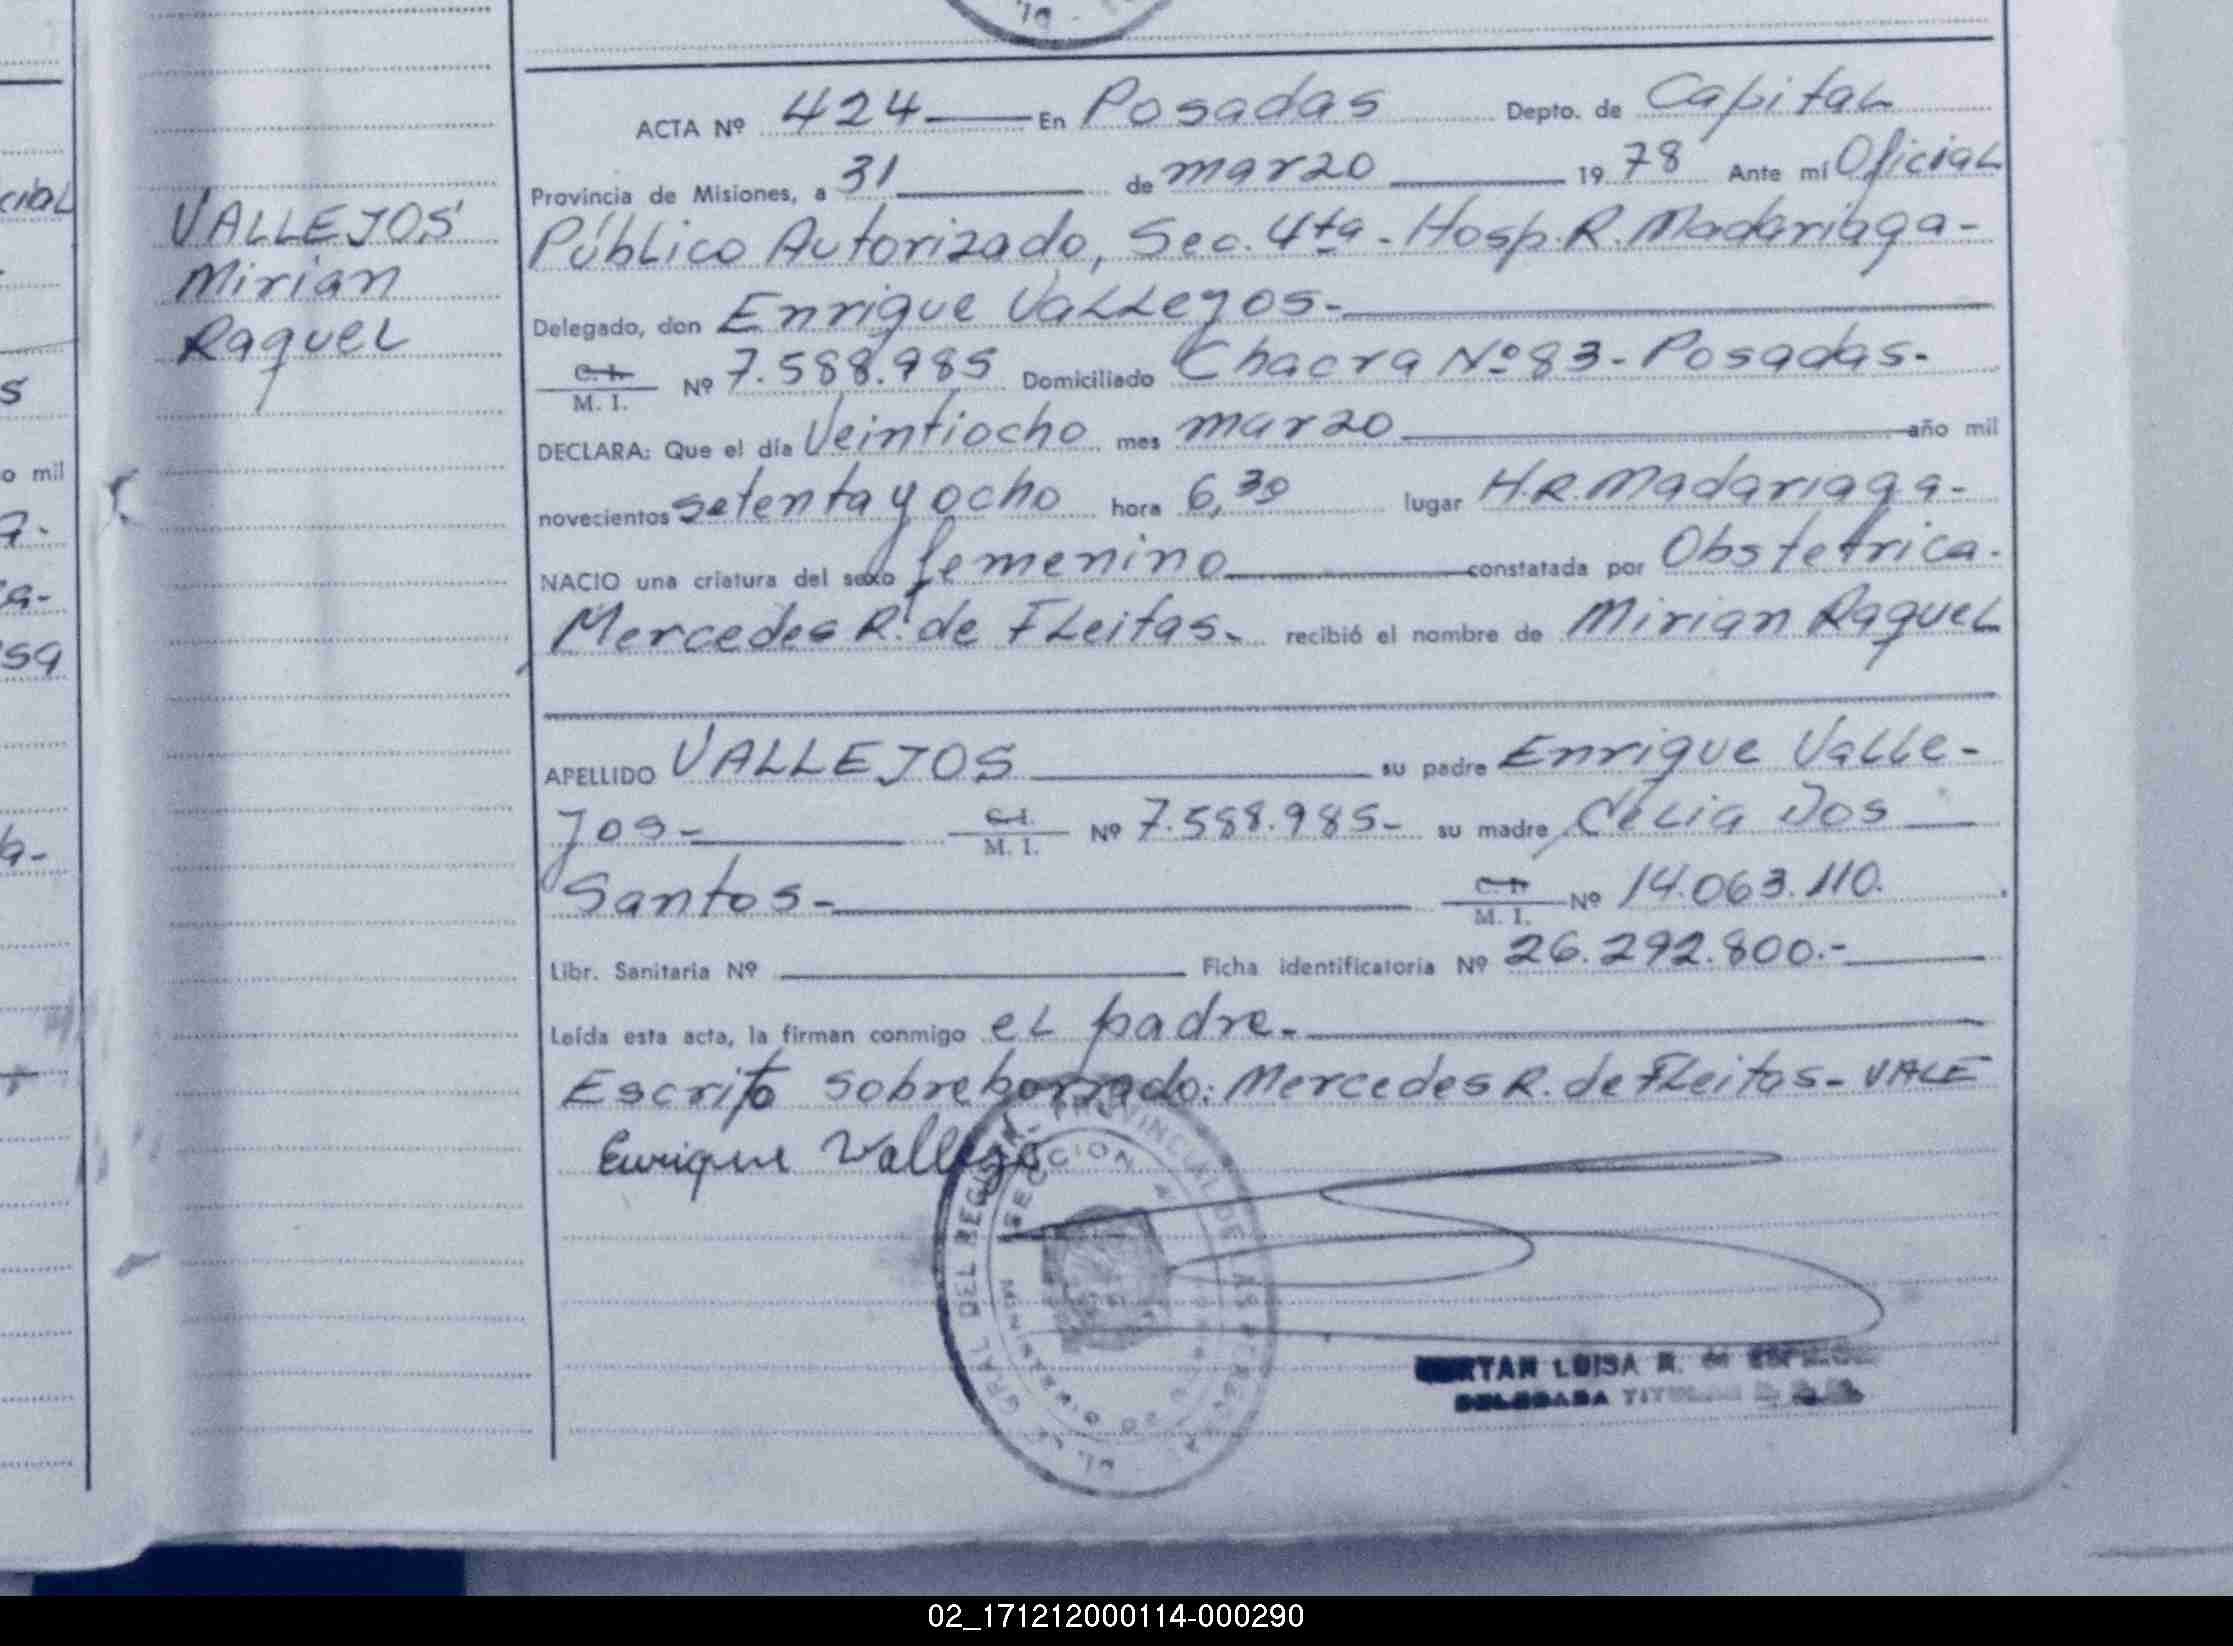 VALLEJOS
Mirian
Raquel
ACTA Nº 424 En Posadas Depto. de Capital
Provincia de Misiones, a 31 de marzo 1978 Ante mí Oficial
Público Autorizado, Sec. 4ta - Hosp. R. Madariaga-
Delegado, don Enrique Vallejos-
C. I. M. I. Nº 7.588.985 Domiciliado Chacra Nº 83- Posadas-
DECLARA: Que el día Veintiocho mes marzo año mil
novecientos setenta y ocho hora 6,30 lugar H.R. Madariaga-
NACIO una criatura del sexo femenino constatada por Obstetrica-
Mercedes R. de Fleitas- recibió el nombre de Mirian Raquel
APELLIDO VALLEJOS su padre Enrique Valle-
jos- C. I. M. I. Nº 7.588.985- su madre Celia Dos
Santos- C. I. M. I. Nº 14.063.110.
Libr. Sanitaria Nº Ficha identificatoria Nº 26.292.800.-
Leída esta acta, la firman conmigo el padre.-
Escrito sobreborrado: Mercedes R. de Fleitas- VALE
Enrique Vallejo
DEL REGISTRO PROVINCIAL DE LAS PERSONAS
SECCION 4
LUISA R. de
DELEGADA TITULAR
cial
s
o mil
a-
sa
02_171212000114-000290